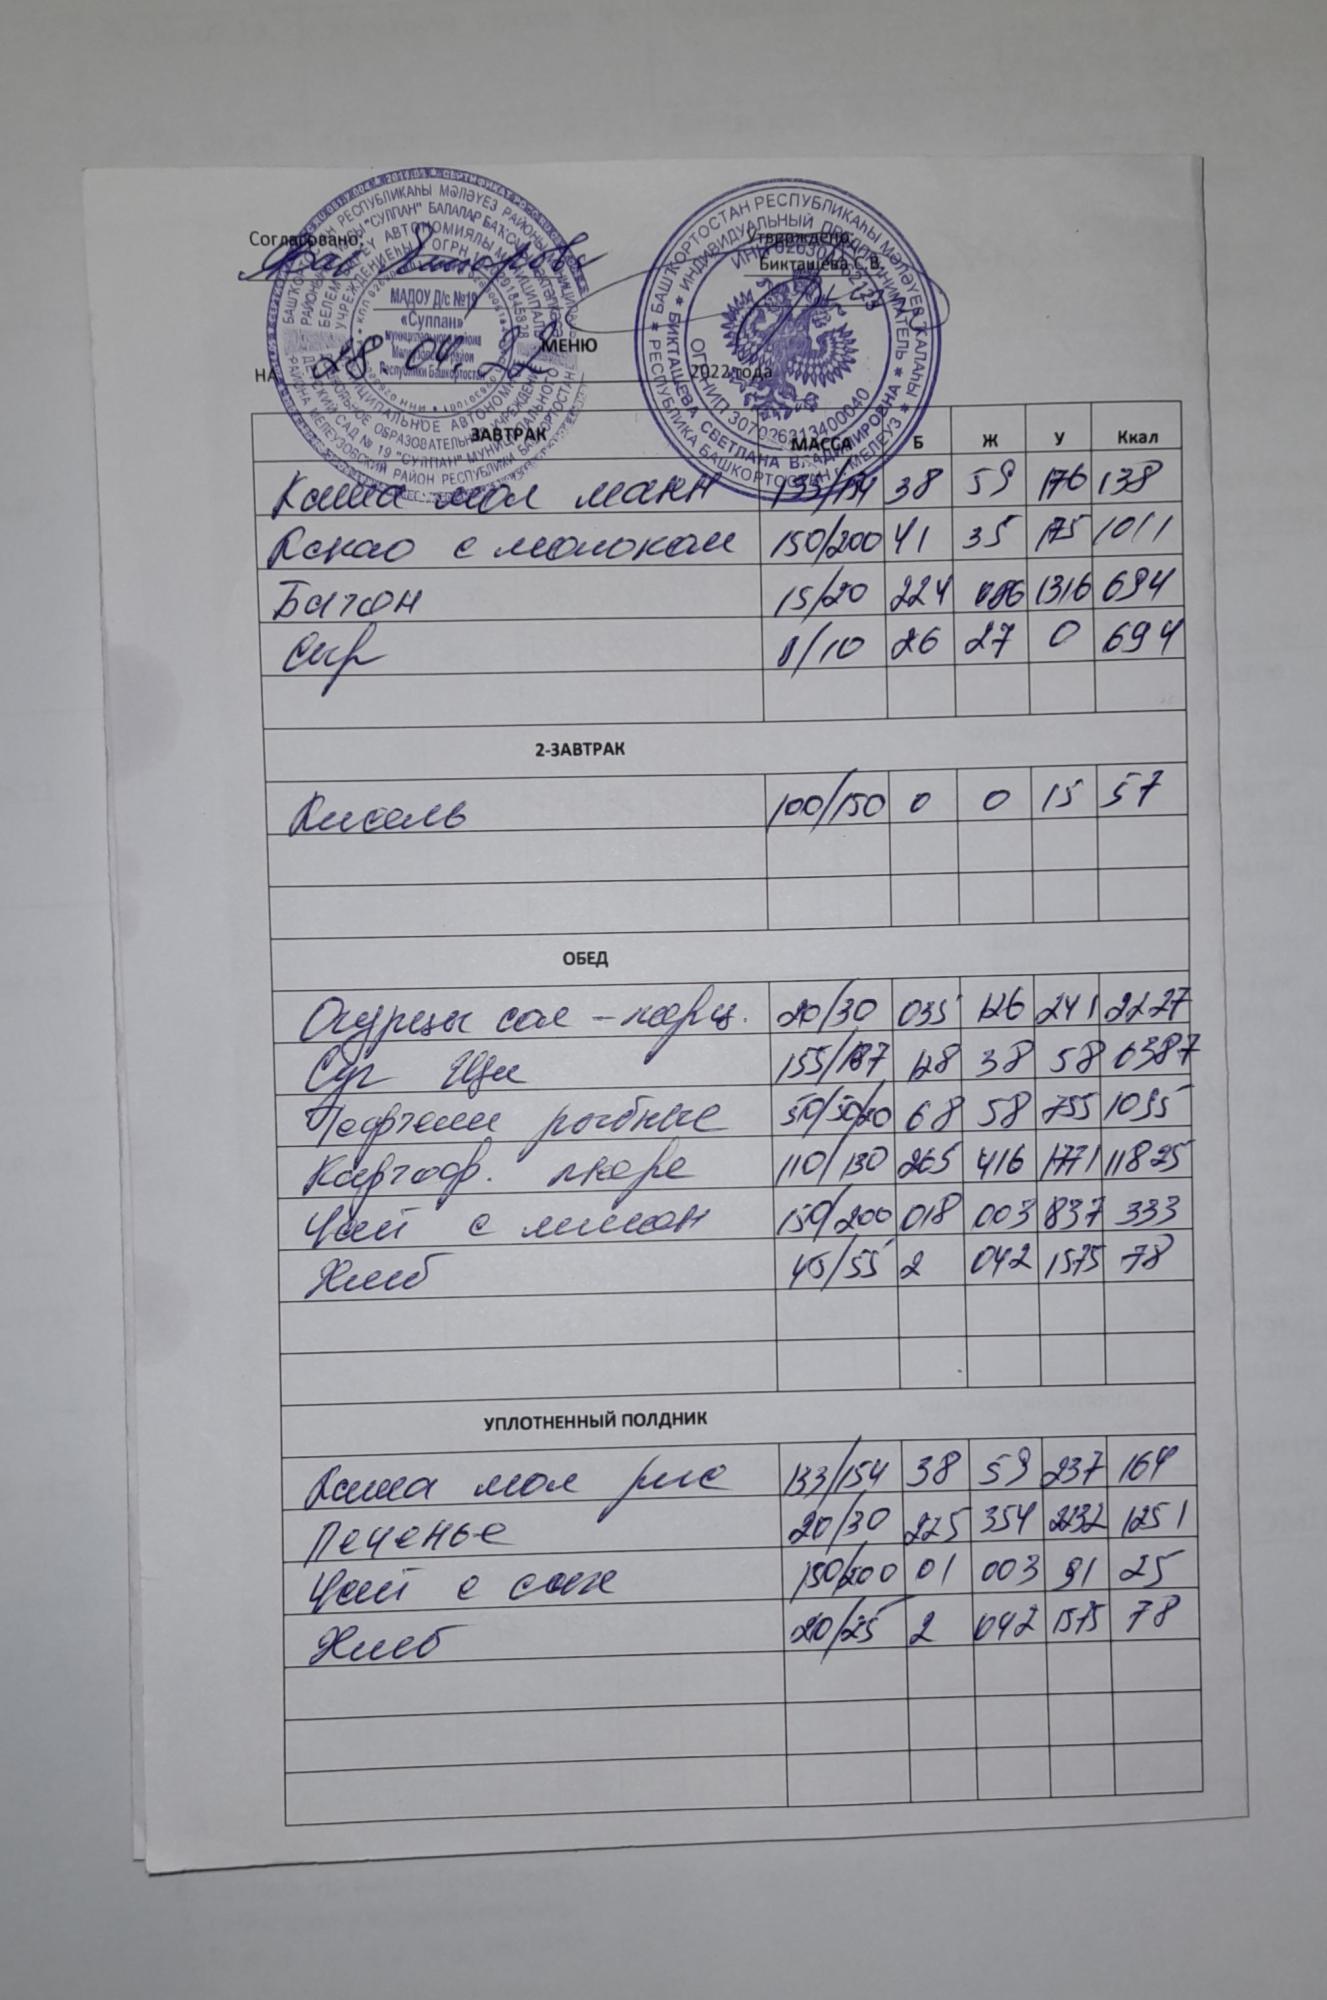 Согласовано:
Утверждено:
Бикташева С.В.
МАДОУ Д/с №19
«Сулпан»
муниципального района
Мелеузовский район
Республики Башкортостан
МЕНЮ
НА 28 04. 22 2022 года
ЗАВТРАК МАССА Б Ж У Ккал
Каша мол манн 133/154 38 59 176 138
Какао с молоком 150/200 41 35 175 1011
Батон 15/20 224 086 1316 694
Сыр 8/10 26 27 0 694
2-ЗАВТРАК
Кисель 100/150 0 0 15 57
ОБЕД
Огурцы сол - порц. 20/30 035 126 241 2227
Суп Щи 155/187 128 38 58 6387
Тефтели рыбные 50/50/20 68 58 755 1095
Картоф. пюре 110/130 265 416 1771 11825
Чай с лимон 150/200 018 003 837 333
Хлеб 45/55 2 042 1575 78
УПЛОТНЕННЫЙ ПОЛДНИК
Каша мол рис 133/154 38 59 237 164
Печенье 20/30 225 354 2232 1251
Чай с сах 150/200 01 003 91 25
Хлеб 20/25 2 042 1575 78